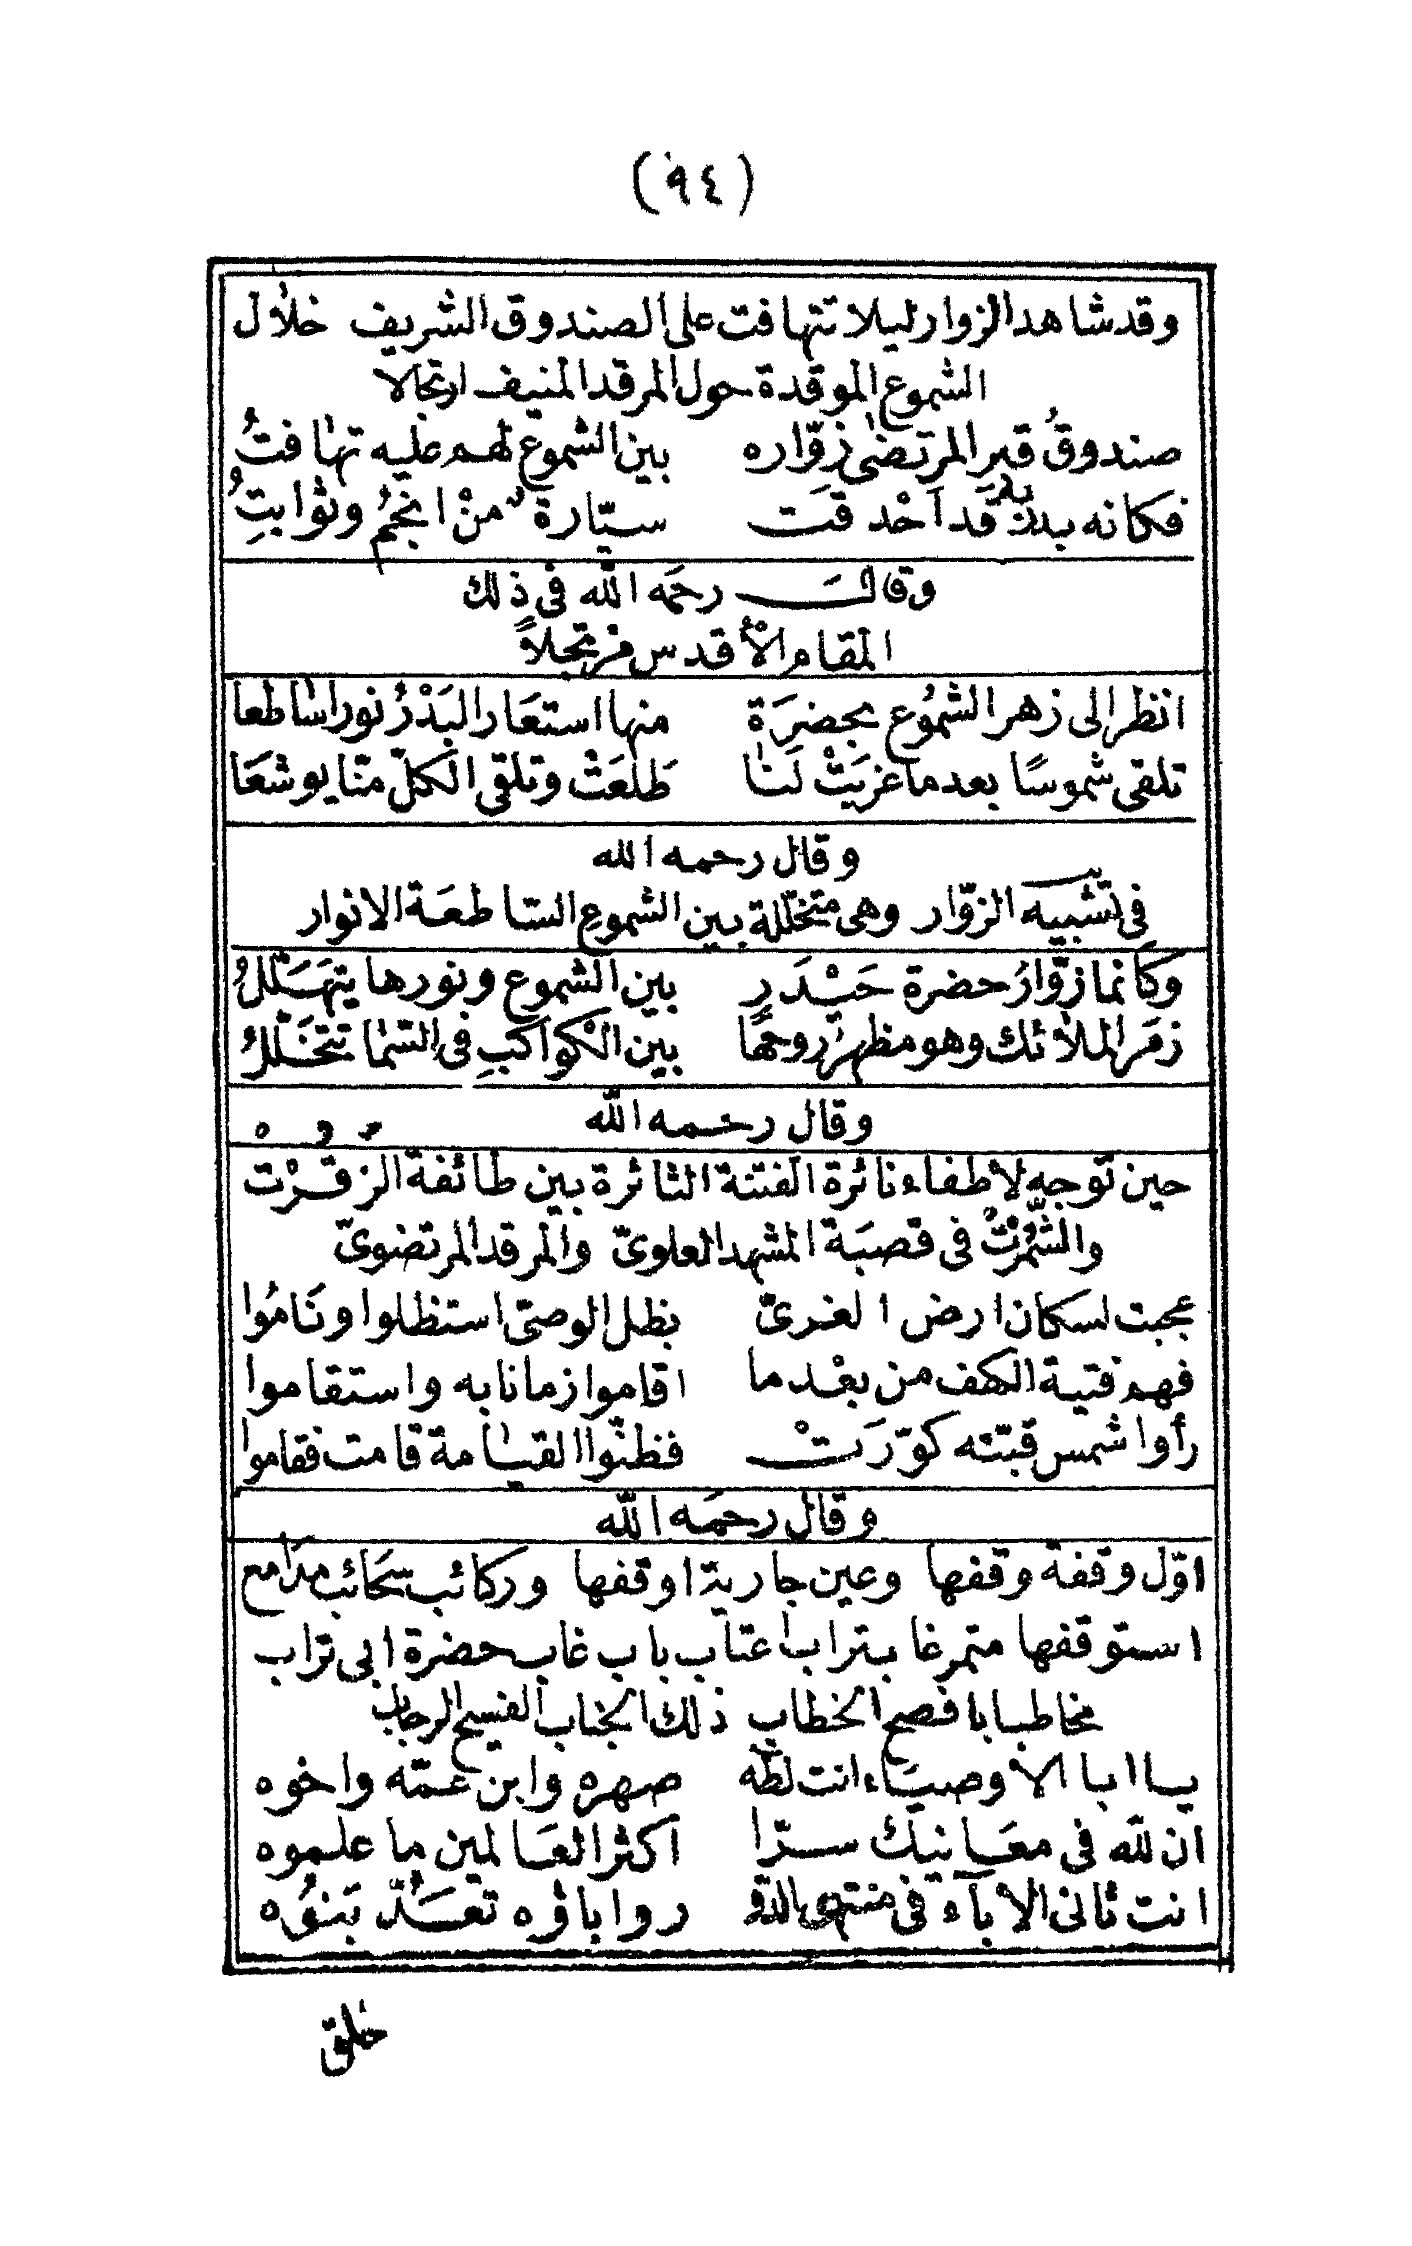 (٩٤)
وقد شاهد الزوار ليلا تتهافت على الصندوق الشريف خلال
الشموع الموقدة حول المرقد المنيف ارتجالا
صندوقُ قبر المرتضى زوّاره بين الشموع لهم عليه تهافتُ
فكانه بدرٌ قد اَحْدقَت سيّارة منْ انجمُ وثوابتِ
وقال رحمَه الله فى ذلك
المقام الأقدس مرتجلاً
انظر الى زهر الشمُوع بحضرَة منها استعَار البَدْرُ نورا ساطعا
تلقى شموسًا بعد ما غربَتْ لَنا طَلعَتْ وتلقى الكلّ منّا يوشعَا
وقال رحمه الله
فى تشبيه الزوّار وهى متخلّلة بين الشموعِ السّاطعَة الانوار
وكانما زوّارُ حضرة حَيْدَرِ بين الشموع ونورها يتهَلّلُ
زمَر الملائك وهو مظهرُ روحهَا بين الكواكبِ فى السّما تتخَلّلُ
وقال رحمه الله
حين توجه لأطفاء نائرة الفتنة الثائرة بين طائفة الزقرْت
والشّمْرْتْ فى قصبَة المشهد العلوىّ والمرقد المرتضوىّ
عجبت لسكان ارض الغرىّ بظل الوصىّ استظلوا ونَامُوا
فهم فتية الكهف من بعْد ما اقاموا زمانا به واستقاموا
رأوا شمس قبّته كوّرَتْ فظنّوا القيامة قامت فقاموا
وقال رحمَه الله
اوّل وقفة وقفها وعين جارية اوقفها وركائب سَحَائب مدَامع
استوقفها متمرغا بتراب اعتاب باب غاب حضرة ابى تراب
مخاطبا بافصح الخطاب ذلك الجناب الفسيح الرحاب
يا ابا الاوصيَاء انت لطه صهره وابن عمّه واخوه
ان لله فى معَانيك سرّا اكثر العَالمين ما علموه
انت ثانى الآباء فى منتهى الدّو ر واباؤه تعَدّ بَنوُه
خلق